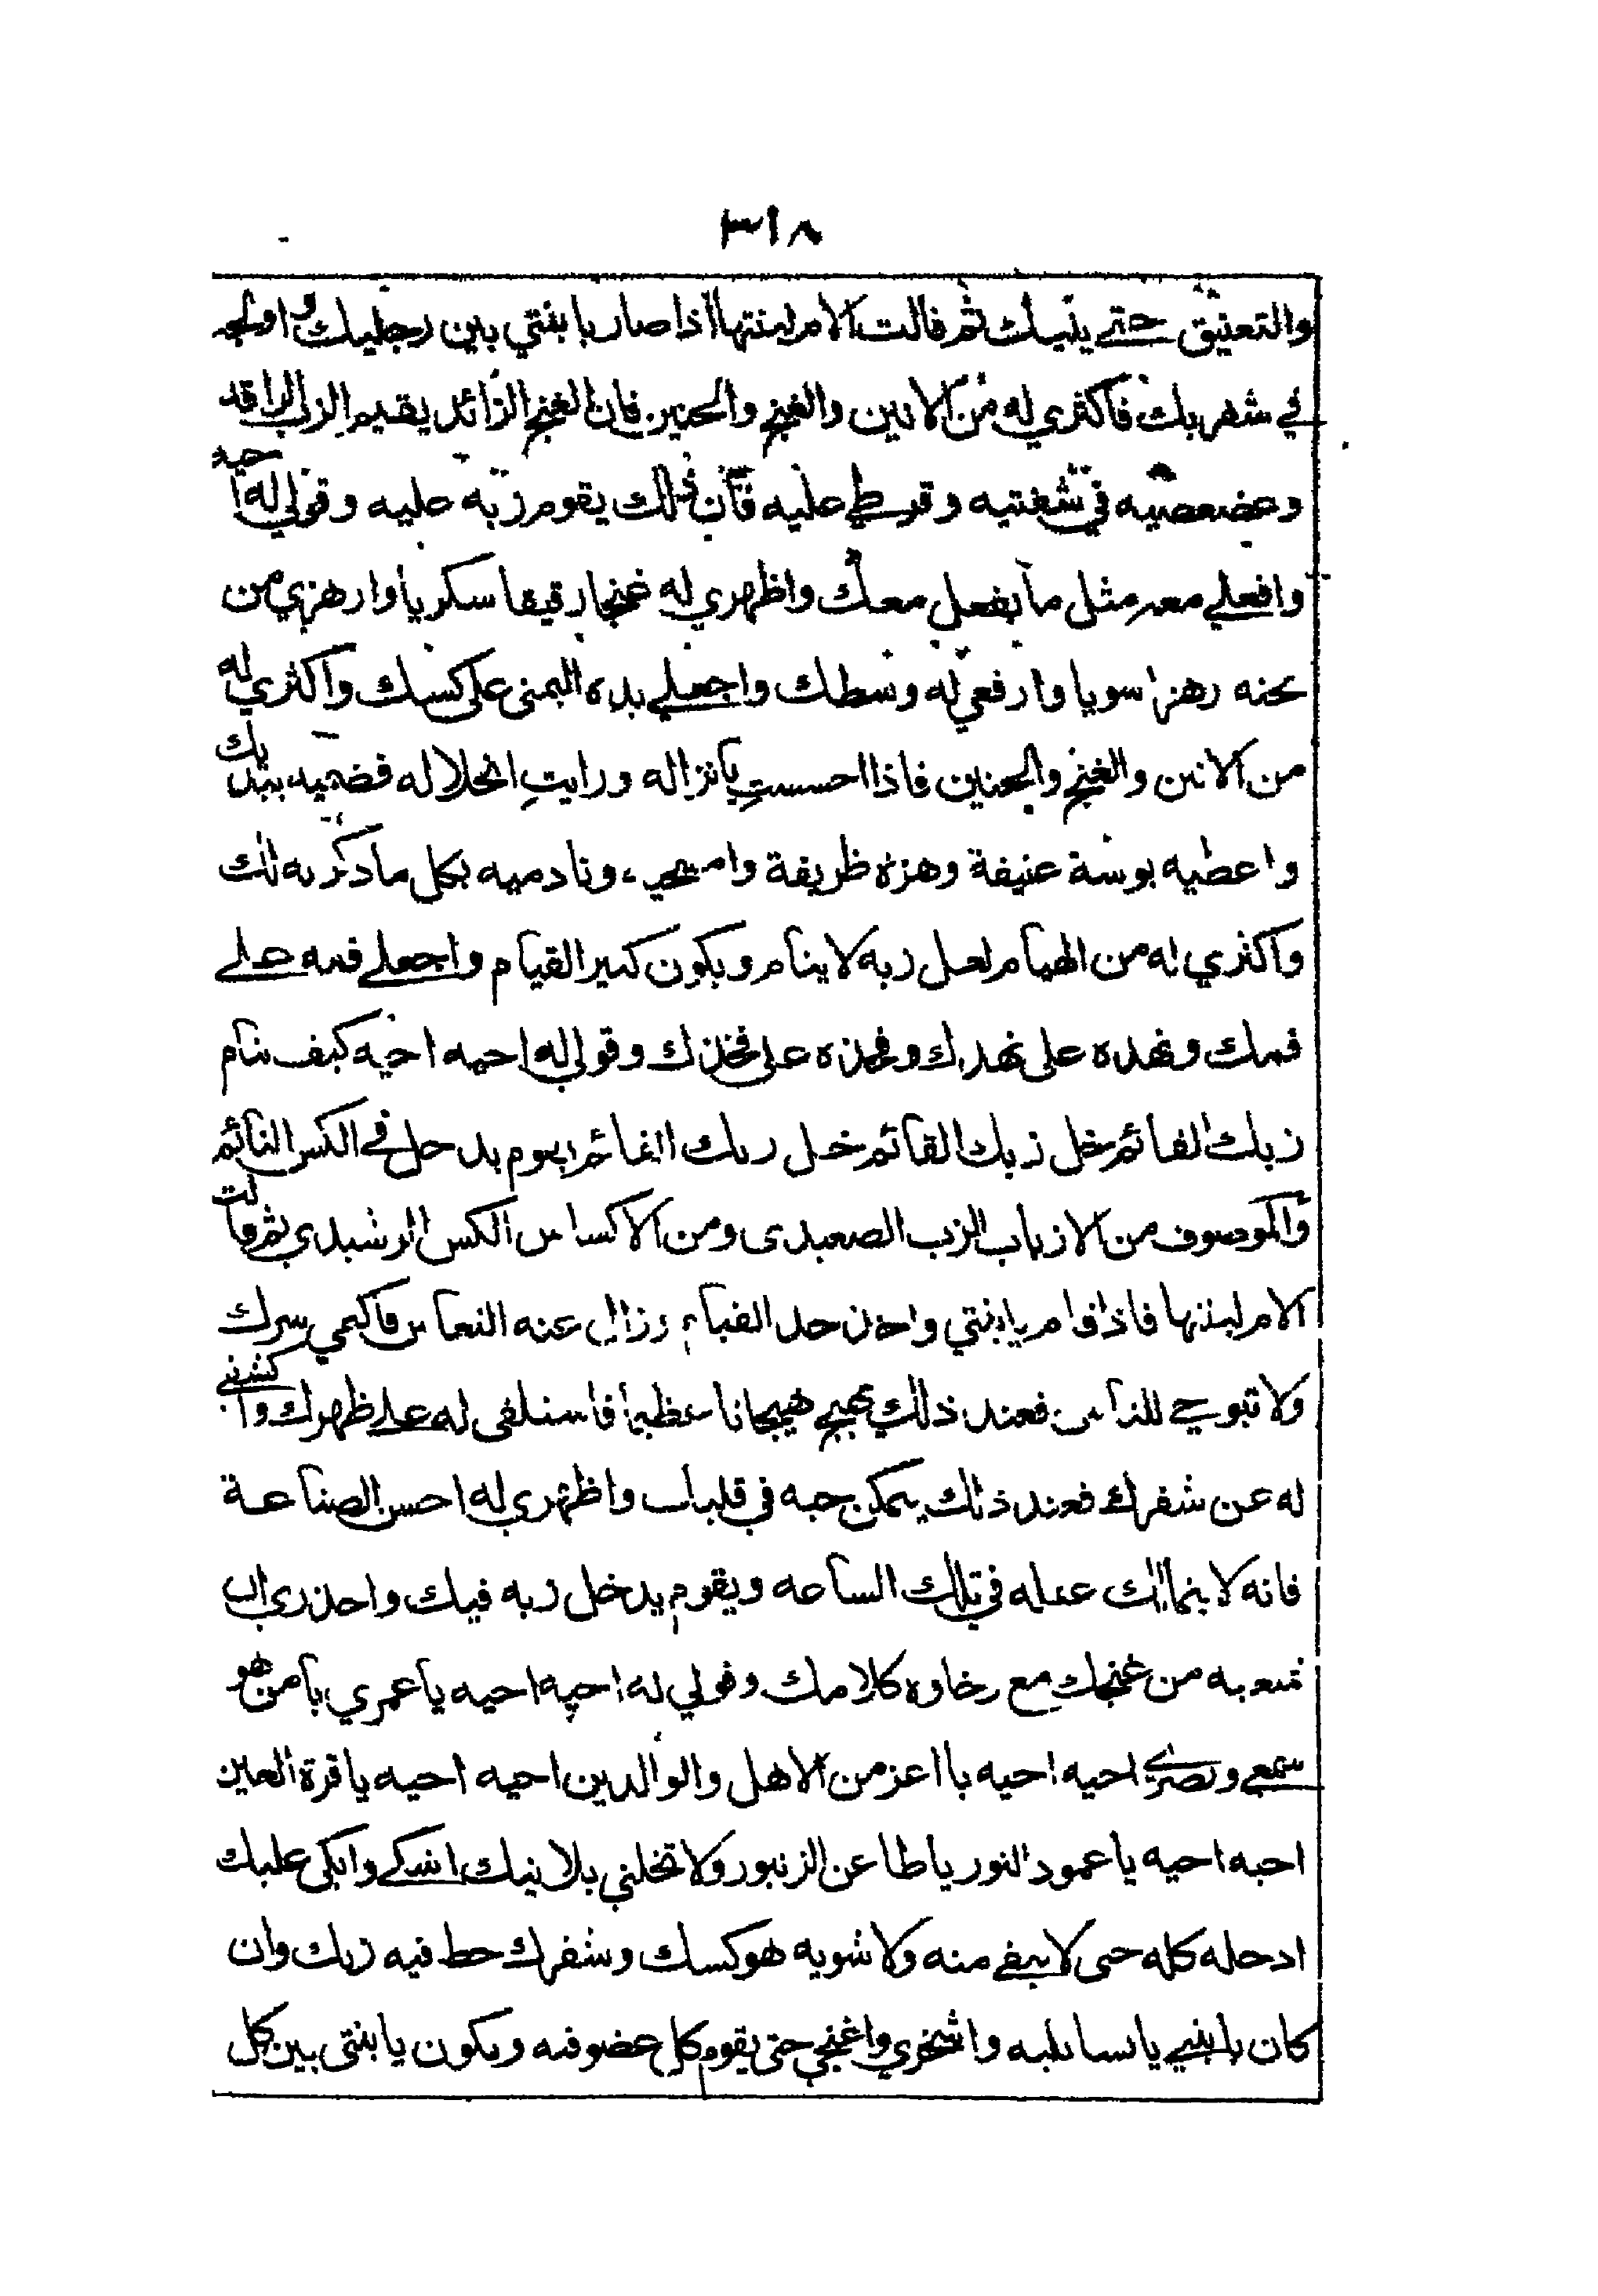 ٣١٨
والتعنيق حتى ينيك ثم قالت الام لبنتها اذا صار يا بنتي بين رجليك و اولجه
في شفريك فاكثري له من الانين والغنج والحنين فان الغنج الزائد يقيم الزب الراقد
وعضعضيه في شفتيه وقرطي عليه فان ذلك يقوم زبه عليه وقولي له احيه
وافعلي معه مثل ما يفعل معك واظهري له غنجا رقيقا سكريا وارهزي من
تحته رهزا سويا وارفعي له وسطك واجعلي يده اليمنى على كسك واكثري له
من الانين والغنج والحنين فاذا احسستِ بانزاله ورايتِ انحلاله فضميه بيديك
واعطيه بوسة عنيفة وهزة ظريفة وامسحي ونادميه بكل ما ذكرته لك
واكثري له من الهيام لعل زبه لا ينام ويكون كثير القيام واجعلي فمه على
فمك ونهده على نهدك وفخذه على فخذك وقولي له احيه احيه كيف ينام
زبك القائم خل زبك القائم خل زبك القائم يقوم يدخل في الكس النائم
والموصوف من الازباب الزب الصعيدى ومن الاكساس الكس الرشيدي ثم قالت
الام لبنتها فاذا قام يا بنتي واخذ حد القيام وزال عنه النعاس فاكتمي سرك
ولا تبوحي للناس فعند ذلك يهيج هيجانا عظيما فاستلقى له على ظهرك واكشفي
له عن شفرك فعند ذلك يتمكن حبه في قلبك واظهري له احسن الصناعة
فانه لا يتمالك عقله في تلك الساعه ويقوم يدخل زبه فيك واحذري ان
تتعبه من غنجك مع رخاوه كلامك وقولي له احيه احيه يا عمري يا من هو
سمعي وبصري احيه احيه يا اعز من الاهل والوالدين احيه احيه يا قرة العين
احيه احيه يا عمود النور يا طاعن الزنبور ولا تخلني بلا نيك اشكي وابكي عليك
ادخله كله حتى لا يبقى منه ولا شويه هو كسك وشفرك حط فيه زبك وان
كان يا بنتي واشخري واغنجي حتى يقوم كل عضو فيه ويكون يا بنتي بين كل